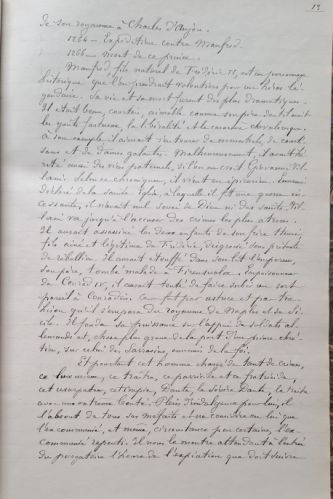 19
de son royaume à Charles d'Anjou.
1264 – Expédition contre Manfred.
1266 – mort de ce prince.
Manfred, fils naturel de Frédéric II, est un personnage
historique que l'on prendrait volontiers pour un héros lé-
gendaire. Sa vie et sa mort furent des plus dramatiques.
Il était beau, courtois, aimable comme son père dont il avait
les goûts fastueux, la libéralité et le courage chevaleresque.
à son exemple il aimait s'entourer de ménestrels, de courti-
sans et de dames galantes. Malheureusement, il avait hé-
rité aussi du vices paternels, si l'on en croit Giovanni Vil-
lani. Selon ce chroniqueur, il vivait en épicurien. Ennemi
déclaré de la sainte Eglise, à laquelle il fit une guerre in-
cessante, il n'avait nul souci de Dieu ni des saints. Vil-
lani va jusqu'à l'accuser des crimes les plus atroces.
Il aurait assassiné les deux enfants de son frère Henri,
fils aîné et légitime de Frédéric,
de rébellion. Il aurait étouffé dans son lit l'empereur,
son père, tombé malade à Firenzuola. Empoisonneur
de Conrad IV, il aurait tenté de faire subir un sort
pareil à Conradin. Ce fut par astuce et par tra-
hison qu'il s'empara du royaume de Naples et de Si-
cile. Il fonda sa puissance sur l'appui de soldats al-
lemands et, chose plus grave de la part d'un prince chré-
tien, sur celui des Sarrasins, ennemis de la foi.
Et pourtant cet homme chargé de tant de crimes,
ce, ce traître, ce parricide et ce fratricide,
cet usurpateur, cet impie, Dante, le sévère Dante, le traite
avec une extrême bonté. Plein d'indulgence pour lui, il
l'absout de tous ses méfaits et ne considère en lui que
l'excommunié, et même, circonstance peu certaine, l'ex-
communié repenti. Il nous le montre attendant à l'entrée
du purgatoire l'heure de l'expiation que doit suivre